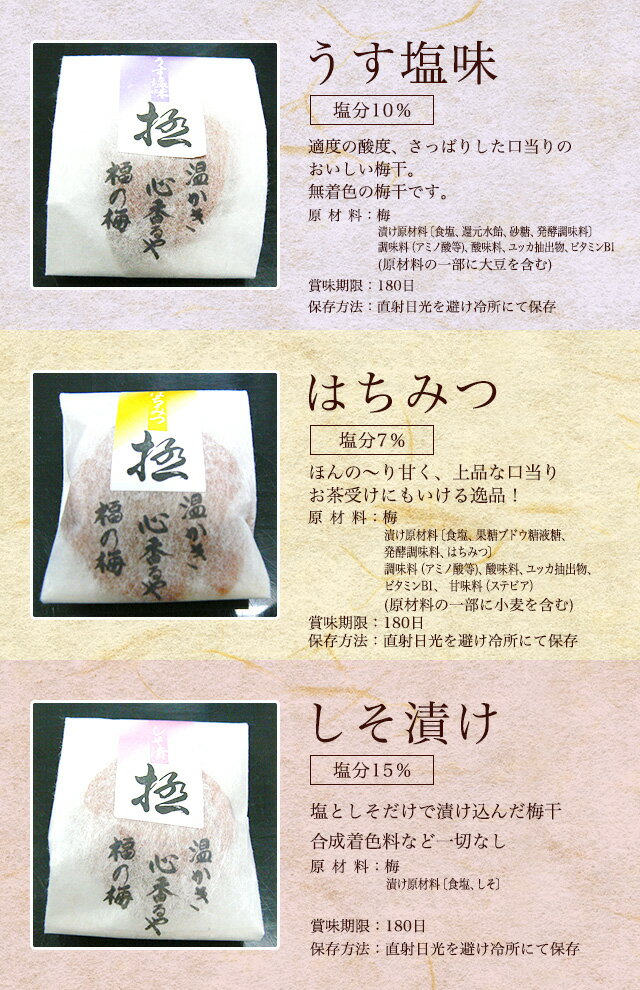 うす塩味
極
温かき
心香るや
福の梅
うす塩味
塩分10%
適度の酸度、さっぱりした口当りの
おいしい梅干。
無着色の梅干です。
原材料：梅
漬け原材料〔食塩、還元水飴、砂糖、発酵調味料〕
調味料（アミノ酸等）、酸味料、ユッカ抽出物、ビタミンB1
(原材料の一部に大豆を含む)
賞味期限：180日
保存方法：直射日光を避け冷所にて保存
はちみつ
極
温かき
心香るや
福の梅
はちみつ
塩分7%
ほんの〜り甘く、上品な口当り
お茶受けにもいける逸品！
原材料：梅
漬け原材料〔食塩、果糖ブドウ糖液糖、
発酵調味料、はちみつ〕
調味料（アミノ酸等）、酸味料、ユッカ抽出物、
ビタミンB1、 甘味料（ステビア）
(原材料の一部に小麦を含む)
賞味期限：180日
保存方法：直射日光を避け冷所にて保存
しそ漬
極
温かき
心香るや
福の梅
しそ漬け
塩分15%
塩としそだけで漬け込んだ梅干
合成着色料など一切なし
原材料：梅
漬け原材料〔食塩、しそ〕
賞味期限：180日
保存方法：直射日光を避け冷所にて保存